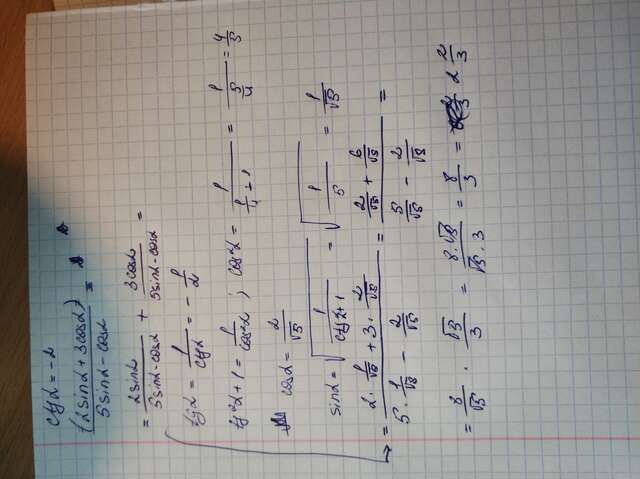 ctgα = -2
(2sinα + 3cosα) / (5sinα - cosα) =
= 2sinα / (5sinα - cosα) + 3cosα / (5sinα - cosα) =
tgα = 1/ctgα = -1/2
tg²α + 1 = 1/cos²α ; cos²α = 1/(1/4 + 1) = 1/(5/4) = 4/5
cosα = 2/√5
sinα = √(1/(ctg²+1)) = √(1/5) = 1/√5
→ = (2·1/√5 + 3·2/√5) / (5·1/√5 - 2/√5) = (2/√5 + 6/√5) / (5/√5 - 2/√5) =
= 8/√5 · √5/3 = 8·√5 / √5·3 = 8/3 = 2 2/3